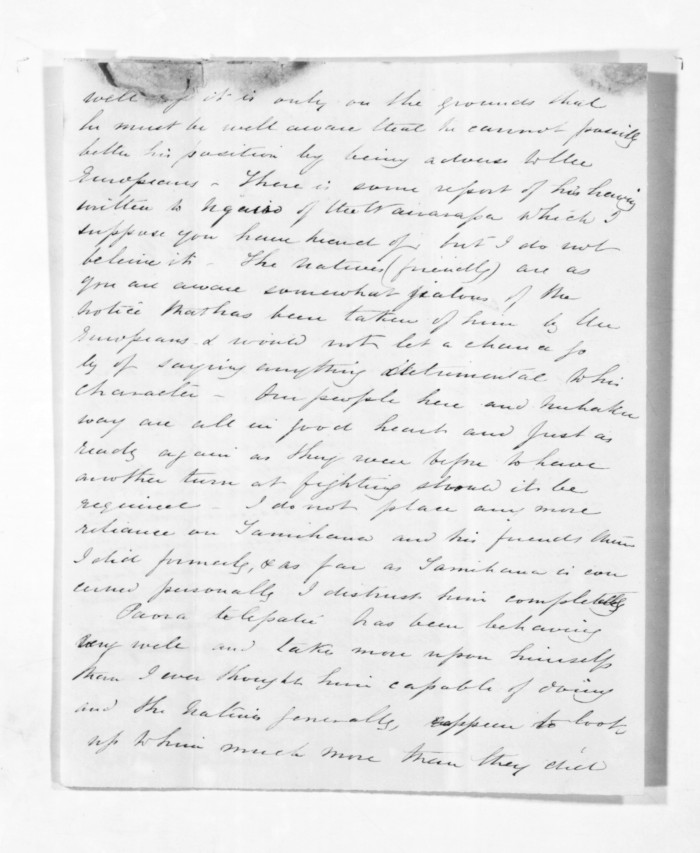 well if it is only on the grounds that
he must be well aware that he cannot possibly
better his position by being adverse to the
Europeans - There is some report of his having
written to Ngairo of the Wairarapa which I
suppose you have heard of, but I do not
beleive it - The natives (friendly) are as
you are aware somewhat jealous of the
notice that has been taken of him by the
Europeans & would not let a chance go
by of saying anything detrimental to his
character - Our people here and Nuhaka
way are all in good heart and just as
ready again as they were before to have
another turn at fighting should it be
required - I do not place any more
reliance on Tamihana and his friends than
I did formerly, & as far as Tamihana is con
cerned personally I distrust him completely
Paora telepatu has been behaving
very well and take more upon himself
than I ever thought him capable of doing
and the natives generally, appear to look
up to him much more than they did